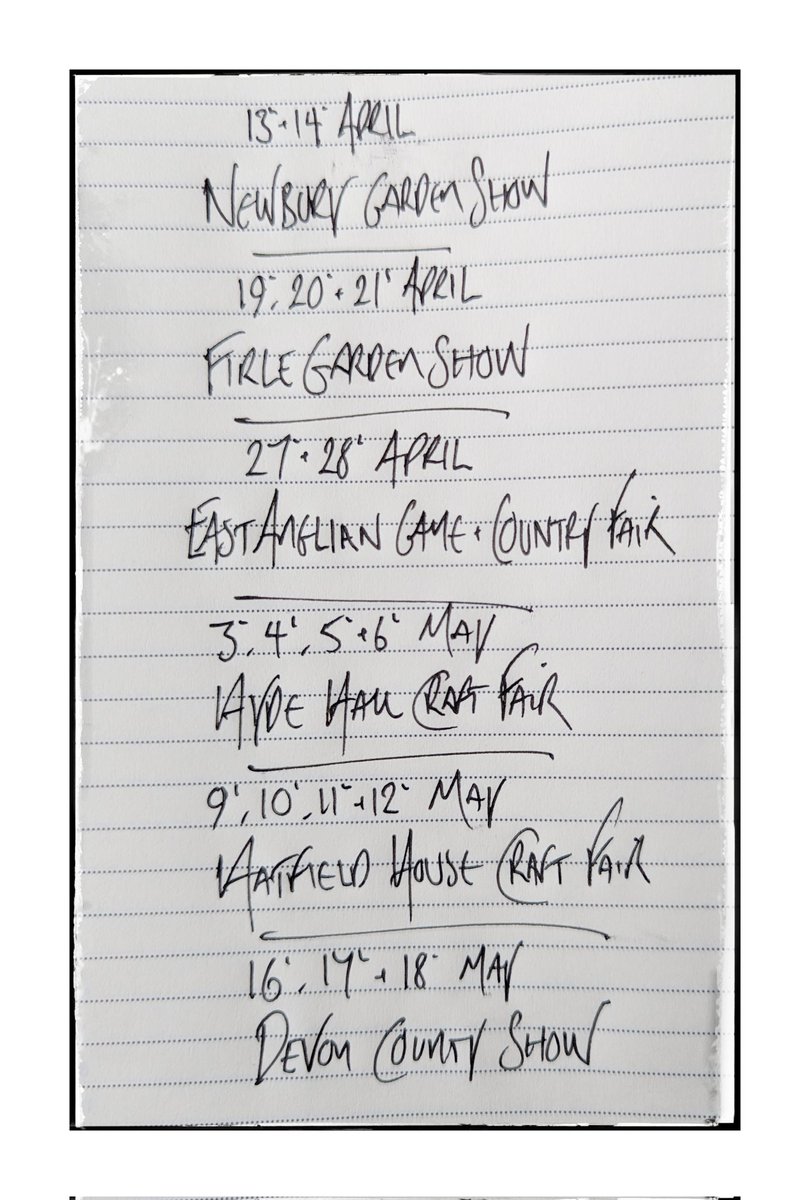 13 + 14 APRIL
NEWBURY GARDEN SHOW
19, 20 + 21 APRIL
FIRLE GARDEN SHOW
27 + 28 APRIL
EAST ANGLIAN GAME + COUNTRY FAIR
3, 4, 5 + 6 MAY
HYDE HALL CRAFT FAIR
9, 10, 11 + 12 MAY
HATFIELD HOUSE CRAFT FAIR
16, 17 + 18 MAY
DEVON COUNTY SHOW